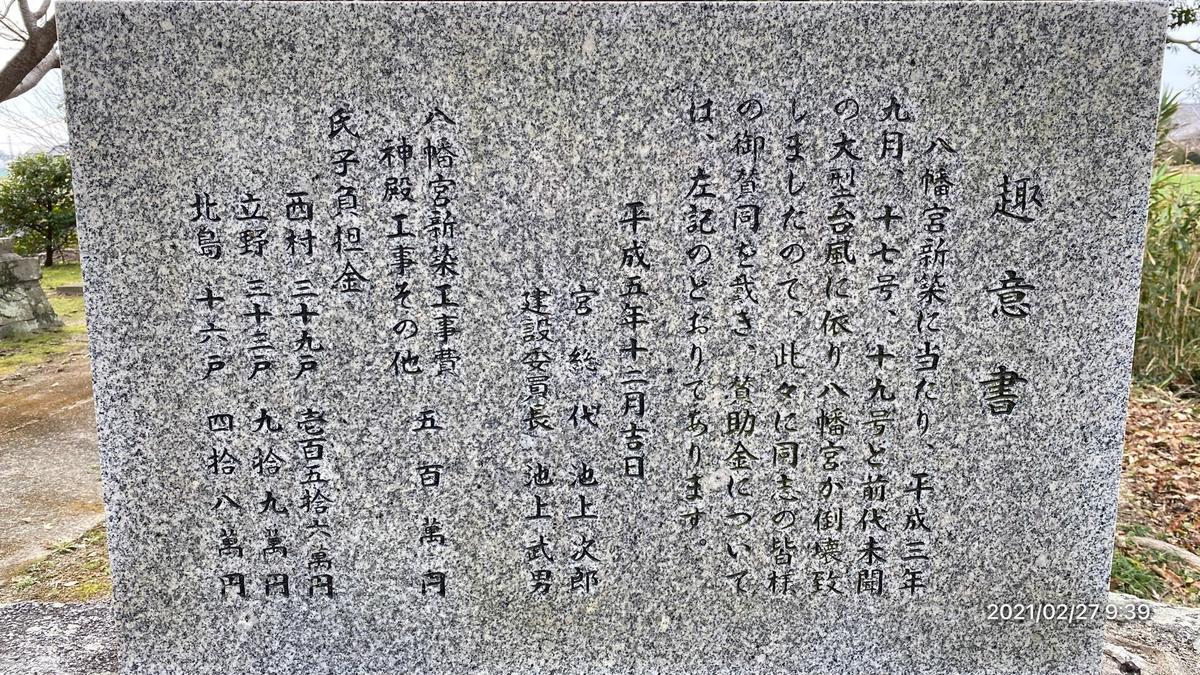 趣意書
八幡宮新築に当たり、平成三年
九月、十七号、十九号と前代未聞
の大型台風に依り八幡宮が倒壊致
しましたので、此々に同志の皆様
の御賛同を戴き、賛助金について
は、左記のとおりであります。
平成五年十二月吉日
宮総代 池上次郎
建設委員長 池上武男
八幡宮新築工事費 五百萬円
神殿工事その他
氏子負担金
西村 三十九戸 壱百五拾六萬円
立野 三十三戸 九拾九萬円
北島 十六戸 四拾八萬円
2021/02/27 9:39